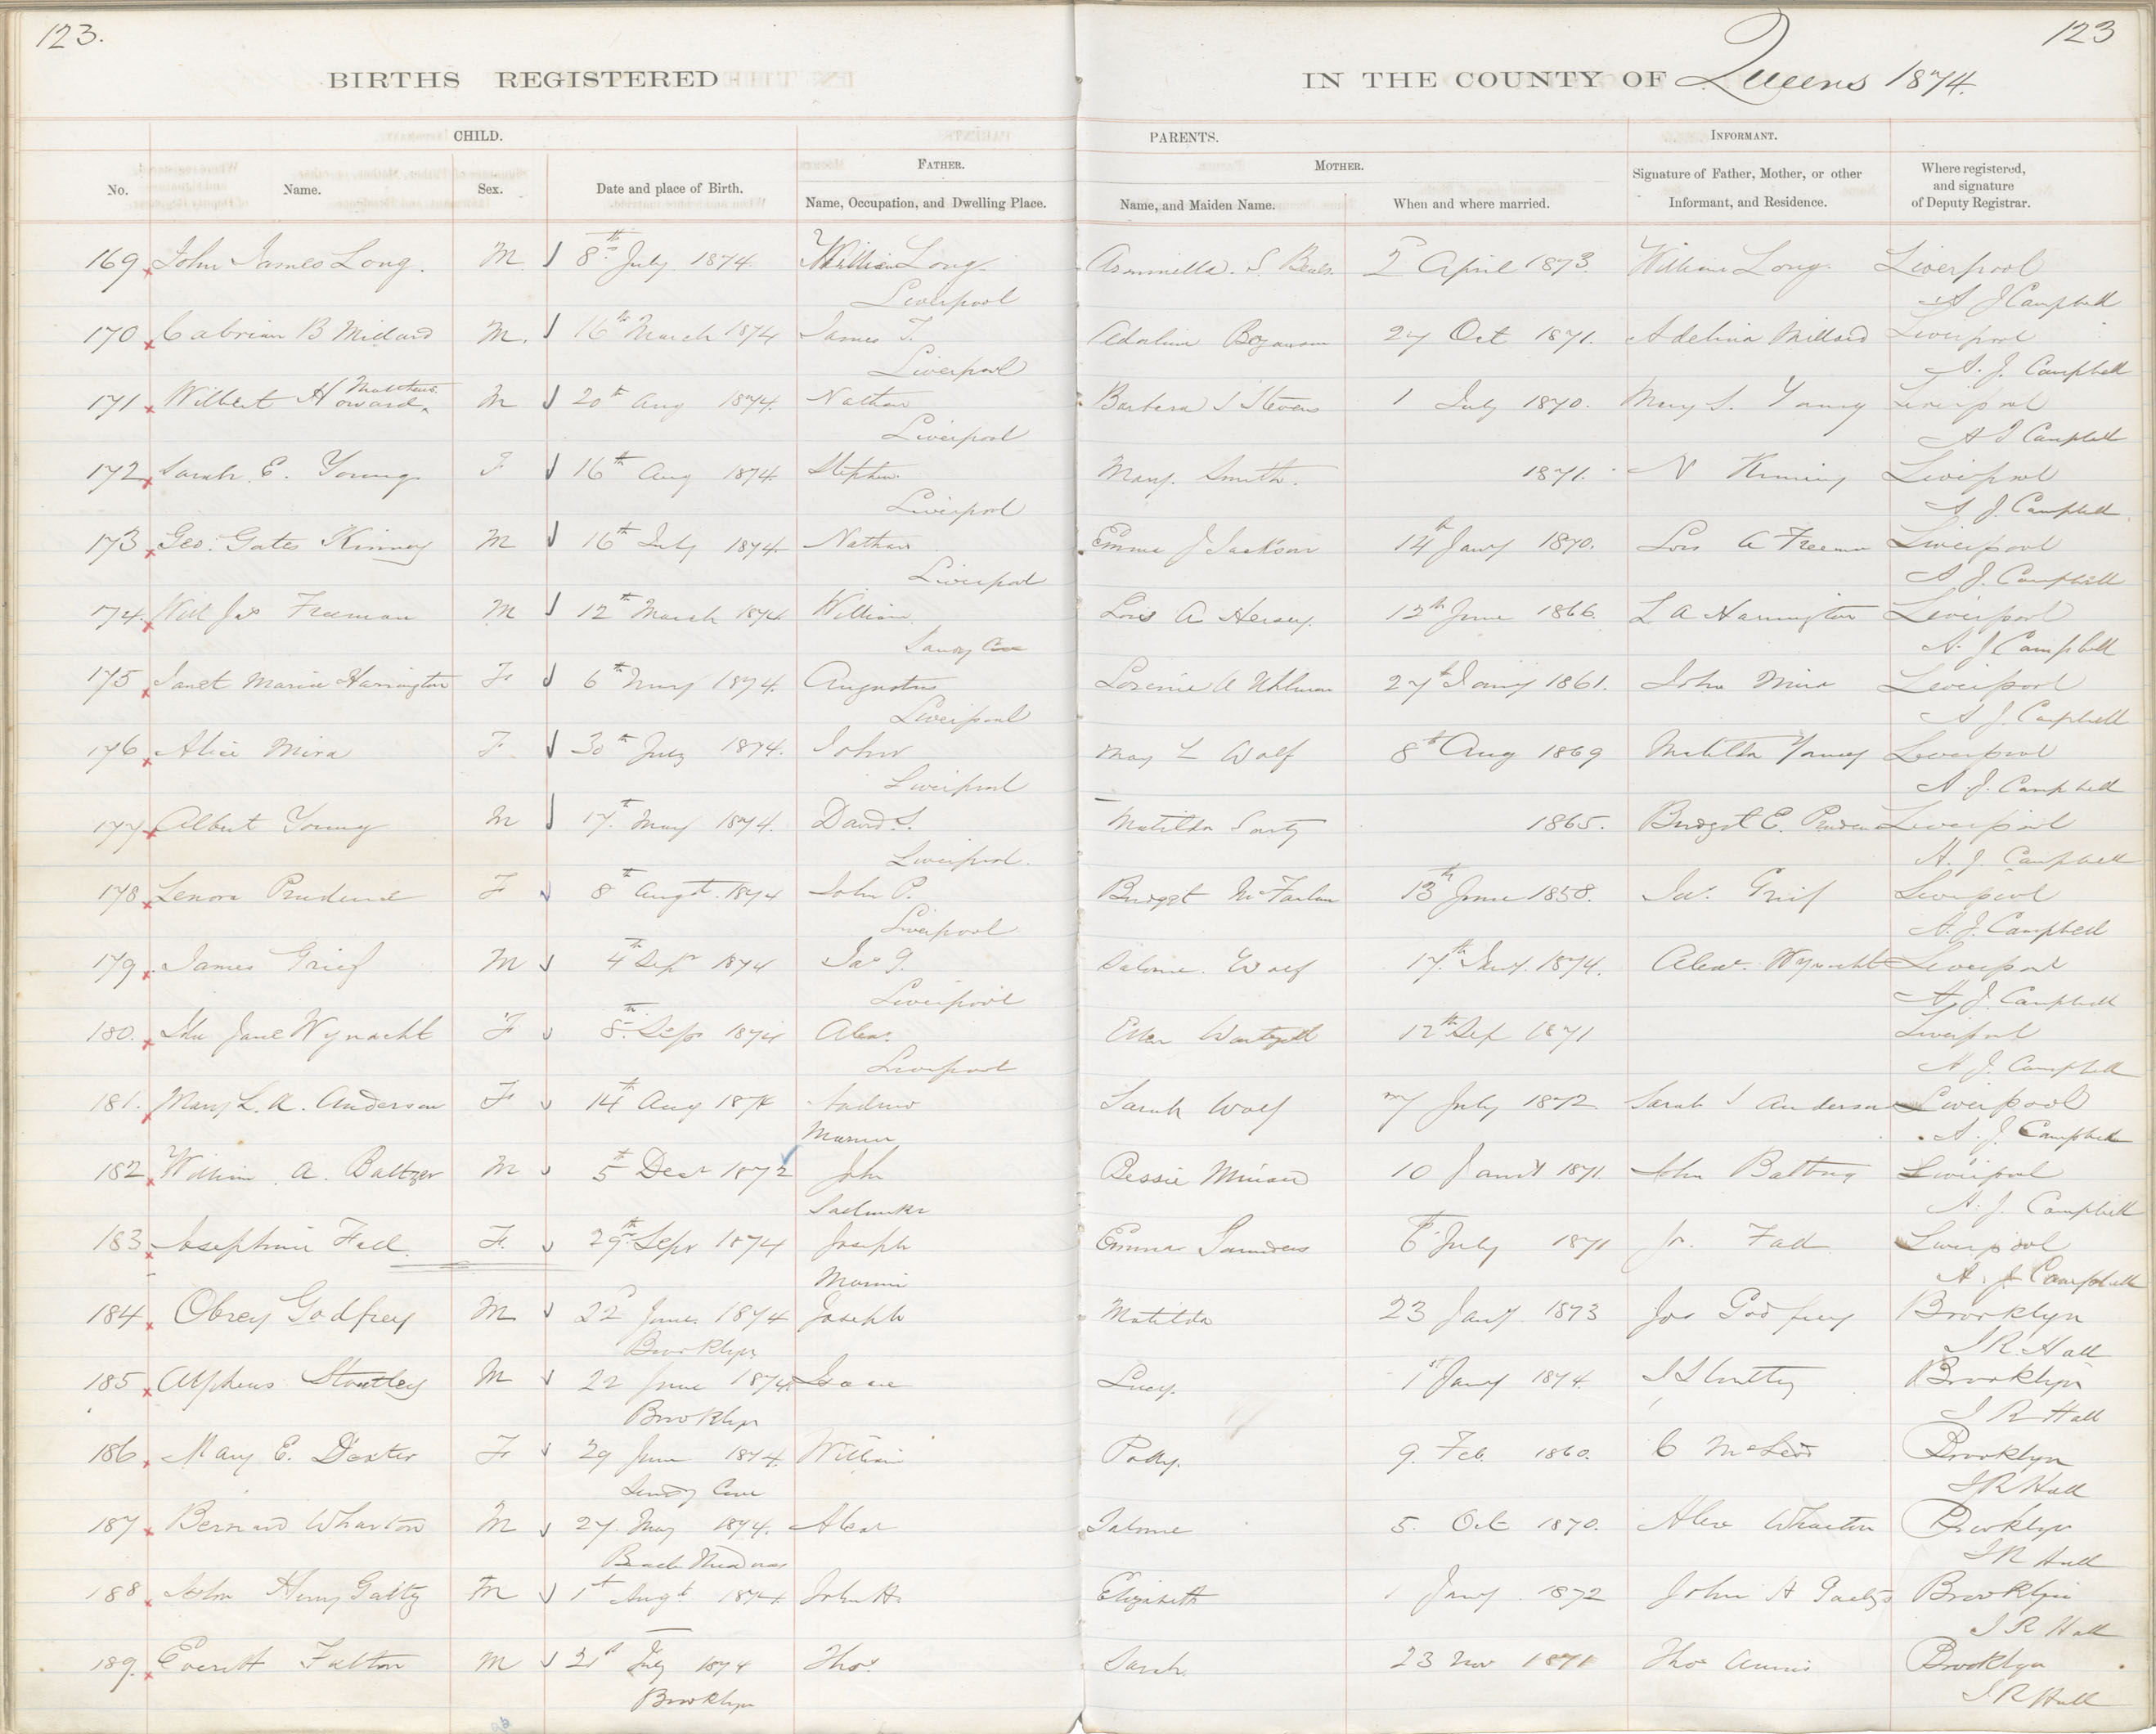 123.
123
BIRTHS REGISTERED IN THE COUNTY OF Queens 1874.
CHILD. PARENTS. INFORMANT.
No. Name. Sex. Date and place of Birth. FATHER. Name, Occupation, and Dwelling Place. MOTHER. Name, and Maiden Name. When and where married. Signature of Father, Mother, or other Informant, and Residence. Where registered, and signature of Deputy Registrar.
169 John James Long. M 8th July 1874 William Long Arminella. S. Beals 2 April 1873. William Long. Liverpool
Liverpool A J Campbell
170 Cabrian B Millard M. 16th March 1874 James T. Adaline 27 Oct 1871. Adelina Millard Liverpool
Liverpool A. J. Campbell
171 Wilbert Howard Matthews M 20th Aug 1874. Nathan Barbara S Stevens 1 July 1870. Mary S. Young Liverpool
Liverpool A J Campbell
172 Sarah E. Young F 16th Aug 1874. Stephen Mary Smith. 1871. N Liverpool
Liverpool A J. Campbell
173 Geo. Gates Kinney M 16th July 1874 Nathan Emma J Jackson 14th Jany 1870. Lois A Freeman Liverpool
Liverpool A J. Campbell
174. Will Jas Freeman M 12th March 1874 William Lois A Hersey. 12th June 1866. L A Harrington Liverpool
Sandy Cove A. J Campbell
175 Janet Maria Harrington F 6th May 1874. Augustus A Uhlman 27th Jany 1861. John Mira Liverpool
Liverpool A J. Campbell
176 Alice Mira F 30th July 1874. John May L Wolf 8th Aug 1869 Matilda Young Liverpool
Liverpool A. J. Campbell
177 Albert Young M 17th May 1874. David S. Matilda 1865. Bridget E. Prudence Liverpool
Liverpool. A. J. Campbell
178 Lenora Prudence F 8th Augt. 1874 John P. Bridget McFarlan 13th June 1858. Jas. Grief Liverpool
Liverpool A. J. Campbell
179 James Grief M 4th Sepr 1874 Jas G. Salome. Wolf 17th Jany. 1874. Alexr. Wynacht Liverpool
Liverpool A. J. Campbell
180. Ida Jane Wynacht F 8th Sepr 1874 Alexr. Ellen 12th Sep 1871 Liverpool
Liverpool A J. Campbell
181. Mary L. A. Anderson F 14th Aug 1874 Andrew Sarah Wolf July 1872 Sarah S Anderson Liverpool
Mariner A. J. Campbell
182 William A. Baltzer M 5th Decr 1872 John Bessie Minard 10 Jany 1871. John Liverpool
Sailmaker A. J. Campbell
183 Josephine Fall. F. 29th Sepr 1874 Joseph Emma Saunders 6th July 1871 Jos. Fall Liverpool
Mariner A. J. Campbell
184 Obrey Godfrey M 22 June 1874 Joseph Matilda 23 Jany 1873 Jos Godfrey Brooklyn
Brooklyn J R. Hall
185 Alpheus Stoutley M 22 June 1874 Isaac Lucy. 1st Jany 1874. Brooklyn
Brooklyn J R Hall
186 Mary E. Dexter F 29 June 1874. William Polly. 9. Feb 1860. C McLeod Brooklyn
Sandy Cove J R Hall
187 Bernard Wharton M 27. May 1874. Alexr Salome 5. Oct 1870. Alex Wharton Brooklyn
Beach Meadows J R Hall
188 John Henry Gaitz M 1st Augt 1874 John H. Elizabeth 1 Jany 1872 John H Brooklyn
J R Hall
189. Everett Fulton M 21st July 1874 Thos. Sarah 23 Nov 1871 Thos Annis Brooklyn
Brooklyn J R Hall